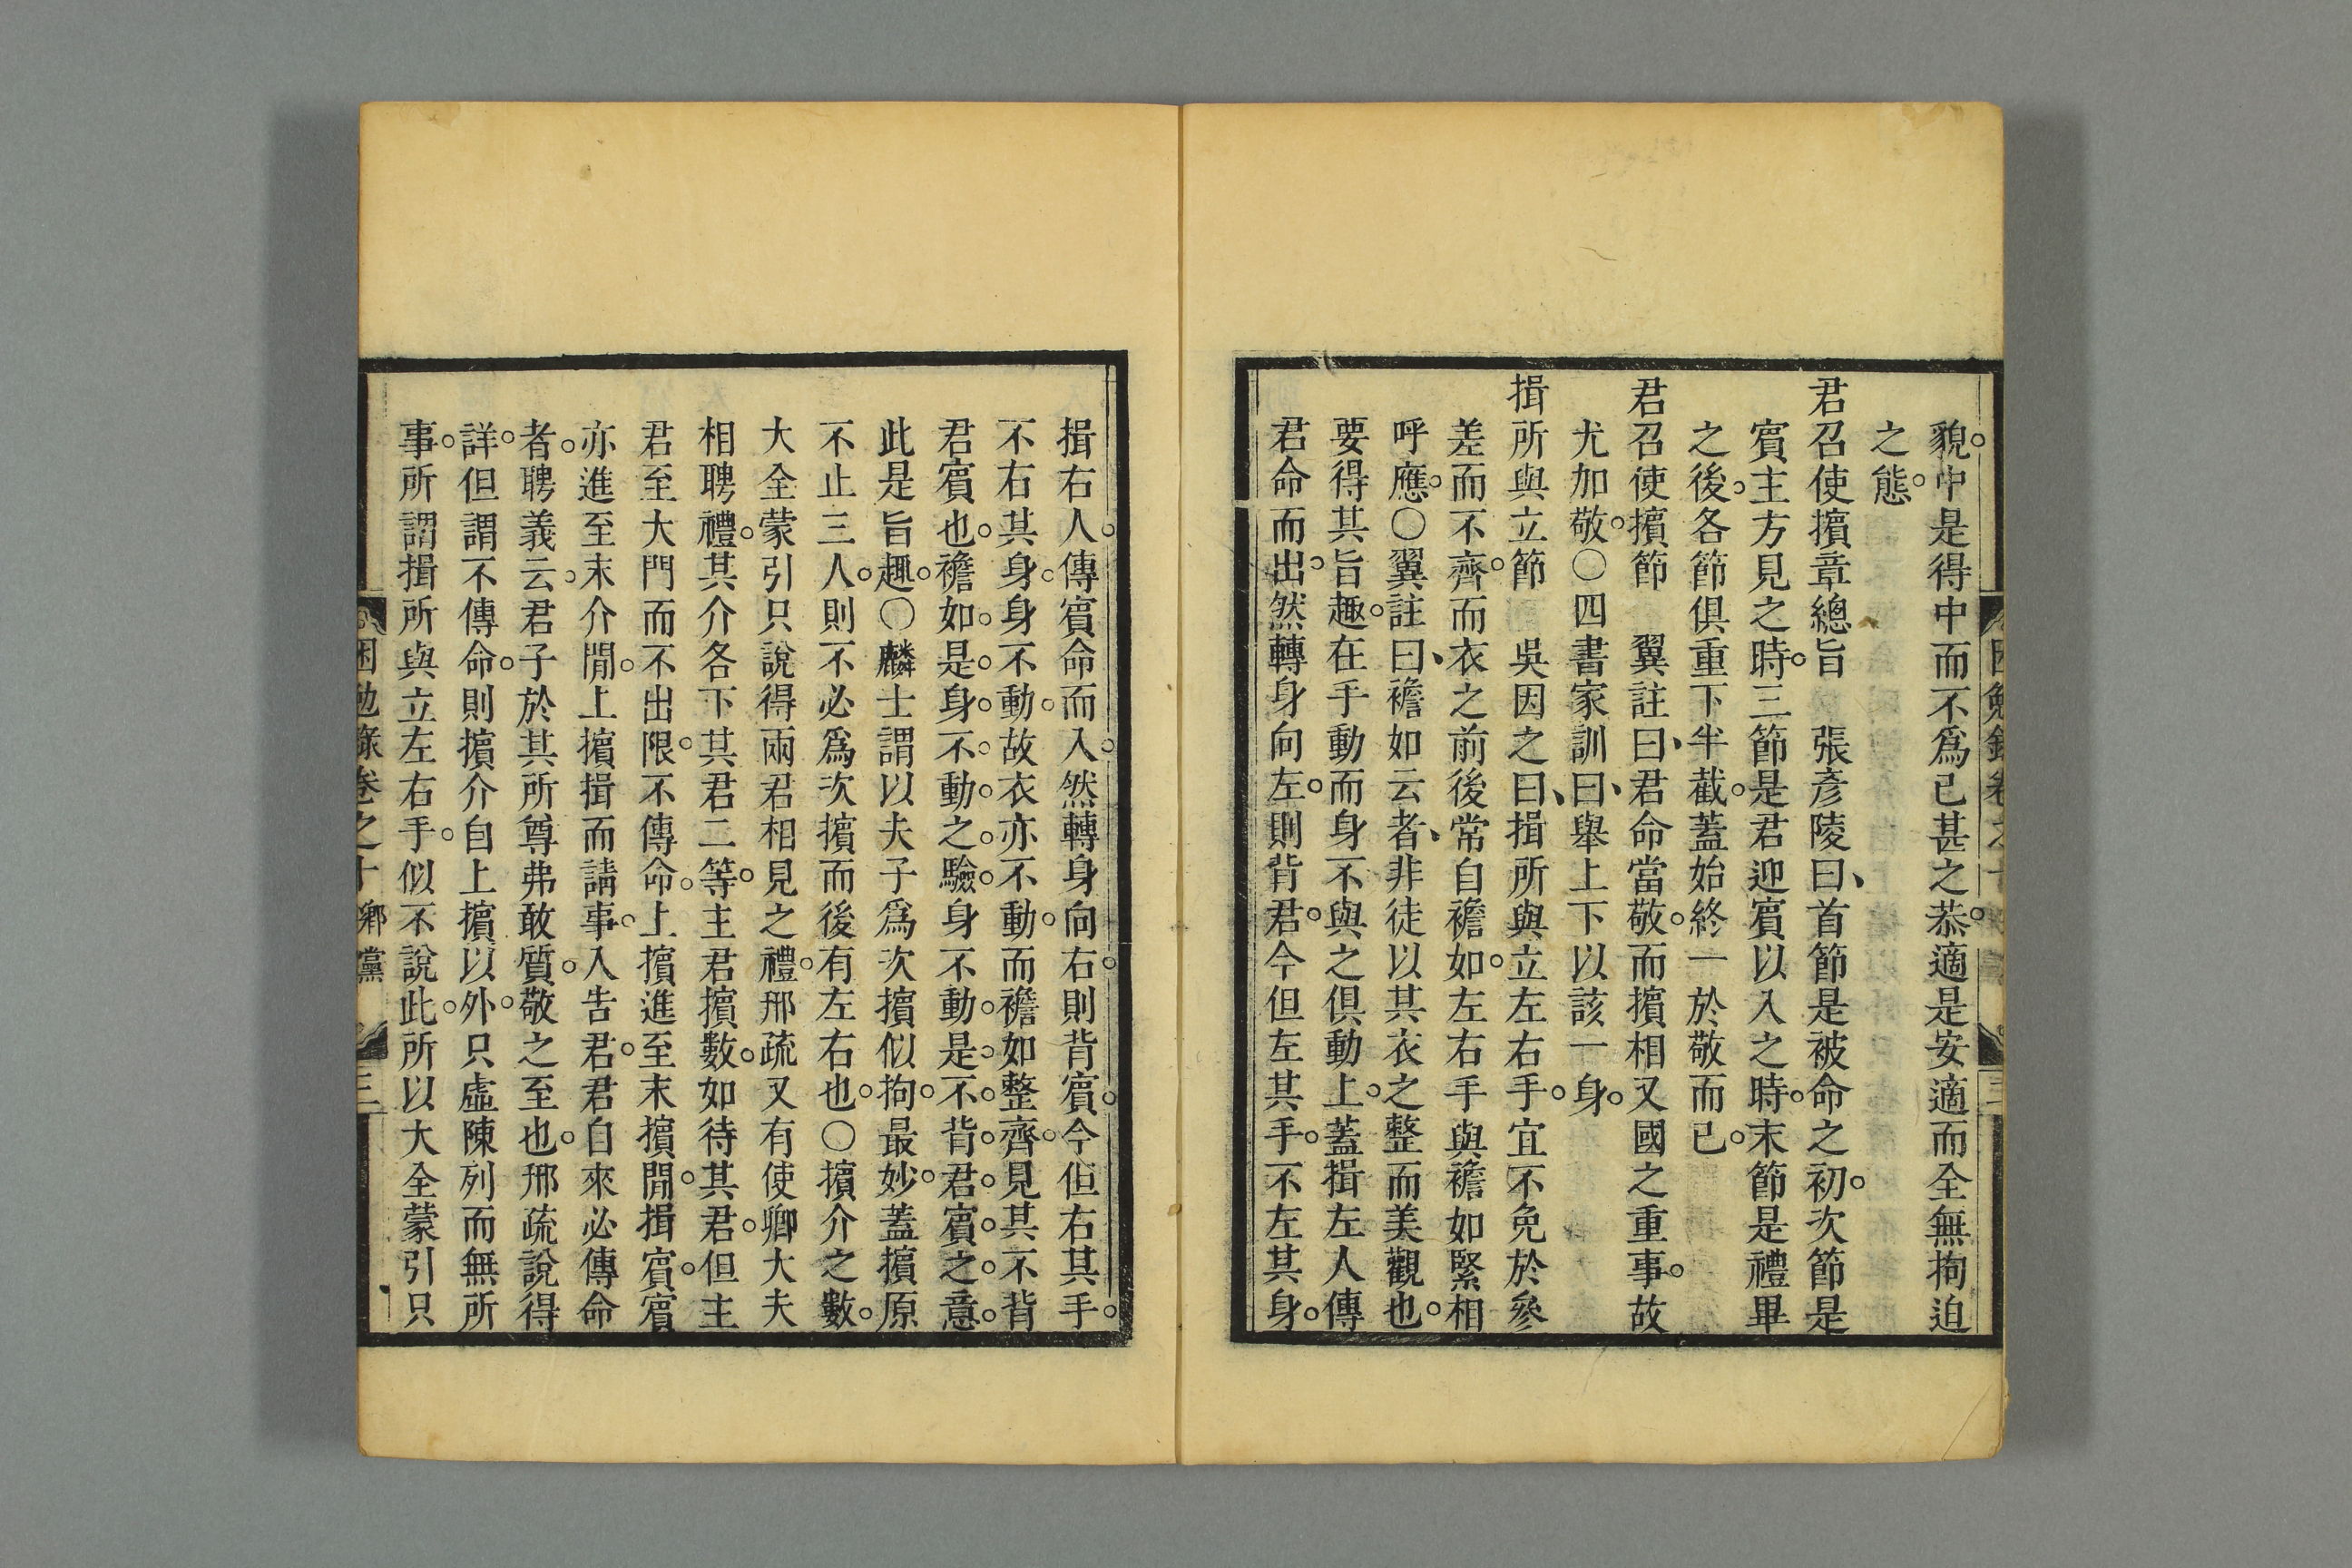 貌中是得中而不爲已甚之恭適是安適而全無拘迫
之態
君召使擯章總旨　張彥陵曰首節是被命之初次節是
賓主方見之時三節是君迎賓以入之時末節是禮畢
之後各節俱重下半截蓋始終一於敬而已
君召使擯節　翼註曰君命當敬而擯相又國之重事故
尤加敬〇四書家訓曰舉上下以該一身
揖所與立節　吳因之曰揖所與立左右手宜不免於參
差而不齊而衣之前後常自襜如左右手與襜如緊相
呼應〇翼註曰襜如云者非徒以其衣之整而美觀也
要得其旨趣在手動而身不與之俱動上蓋揖左人傳
君命而出然轉身向左則背君今但左其手不左其身
揖右人傳賓命而入然轉身向右則背賓今但右其手
不右其身身不動故衣亦不動而襜如整齊見其不背
君賓也襜如是身不動之驗身不動是不背君賓之意
此是旨趣〇麟士謂以夫子爲次擯似拘最妙蓋擯原
不止三人則不必爲次擯而後有左右也〇擯介之數
大全蒙引只說得兩君相見之禮邢疏又有使卿大夫
相聘禮其介各下其君二等主君擯數如待其君但主
君至大門而不出限不傳命上擯進至末擯閒揖賓賓
亦進至末介閒上擯揖而請事入告君君自來必傳命
者聘義云君子於其所尊弗敢質敬之至也邢疏說得
詳但謂不傳命則擯介自上擯以外只虛陳列而無所
事所謂揖所與立左右手似不說此所以大全蒙引只
困勉錄卷之十 鄉黨 三